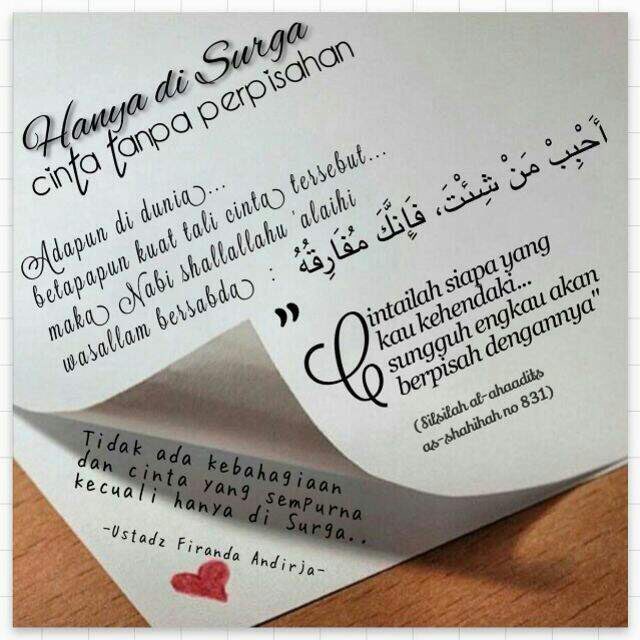 Hanya di Surga
cinta tanpa perpisahan
Adapun di dunia...
betapapun kuat tali cinta tersebut...
maka Nabi shallallahu 'alaihi
wasallam bersabda :
أَحْبِبْ مَنْ شِئْتَ، فَإِنَّكَ مُفَارِقُهُ
"Cintailah siapa yang
kau kehendaki...
sungguh engkau akan
berpisah dengannya"
(Silsilah al-ahaadiits
as-shahihah no 831)
Tidak ada kebahagiaan
dan cinta yang sempurna
kecuali hanya di Surga..
-Ustadz Firanda Andirja-